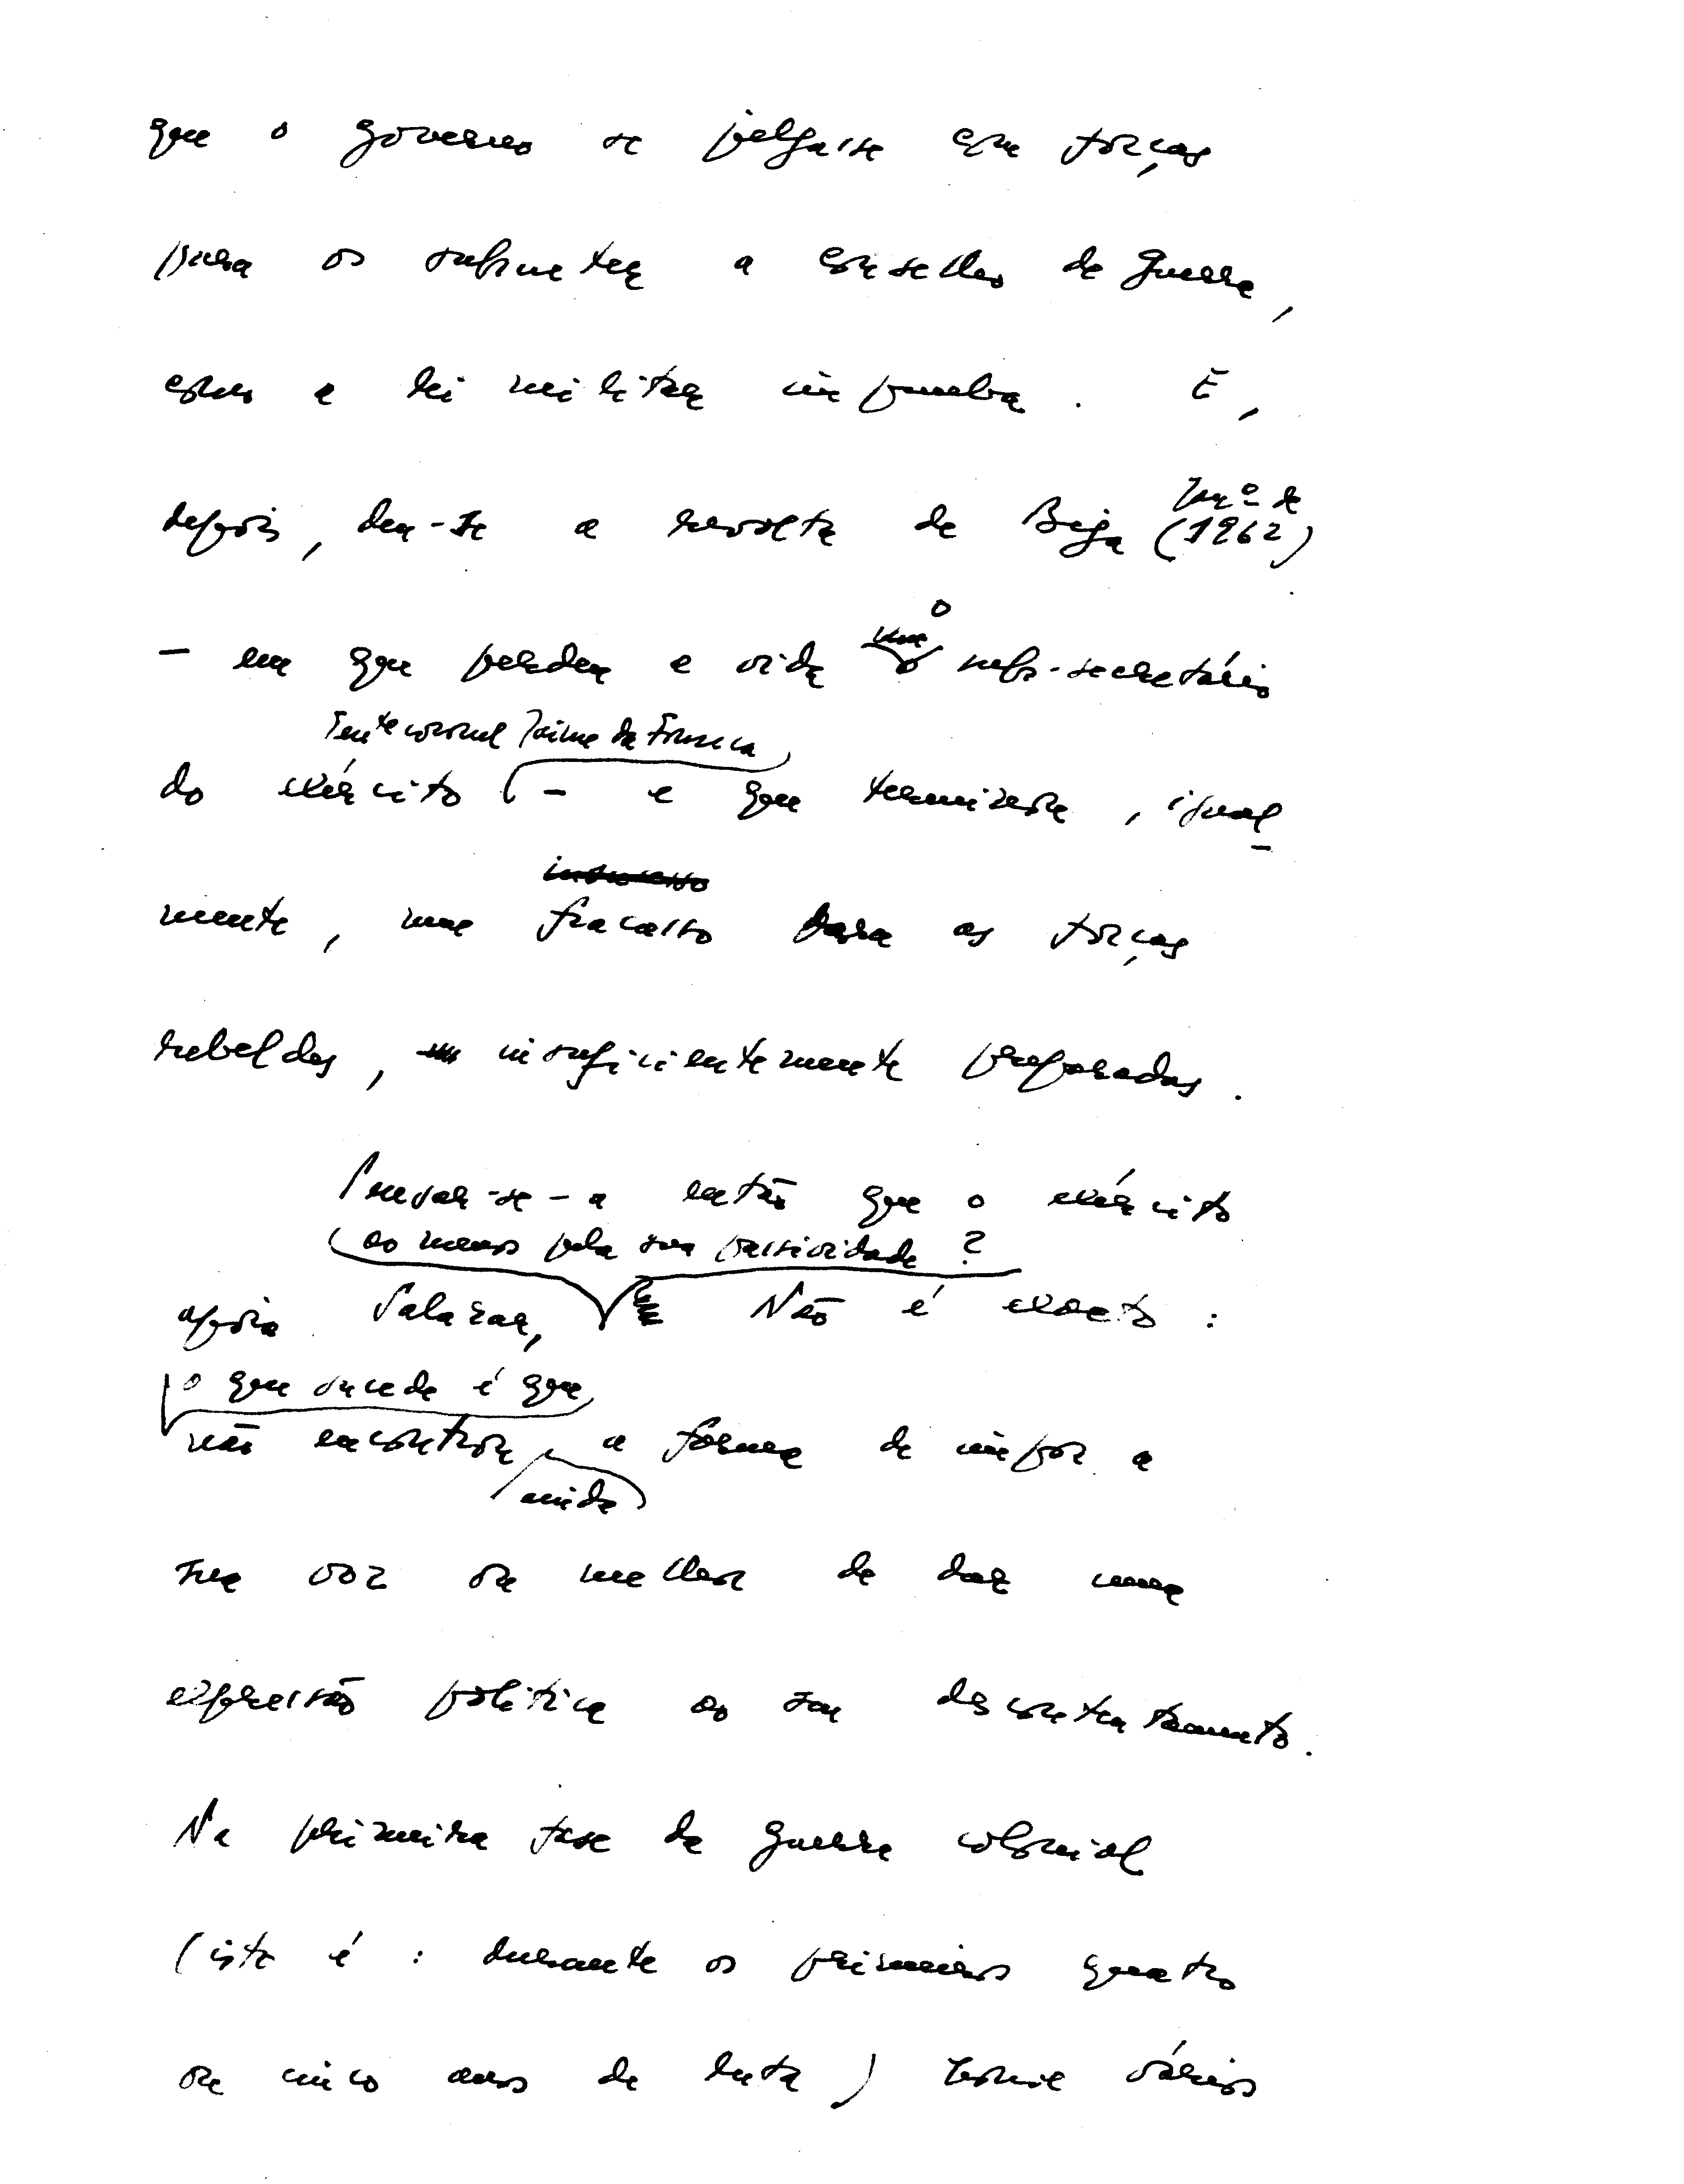 que o governo se julgasse com forças
para os submeter a conselho de guerra,
como a lei militar impunha. E,
Janº de
depois, deu-se a revolta de Beja (1962)
o
- em que perdeu a vida um sub-secretário
Tente coronel Jaime da Fonseca
do exército - e que terminara, igual
insucesso
mente, num fracasso para as forças
rebeldes, insuficientemente preparadas.
Pensar-se-á então que o exército
ao menos pela sua passividade?
apoia Salazar, Não é exacto:
o que sucede é que
não encontrou a forma de impor a
ainda
sua voz ou melhor de dar uma
expressão política ao seu descontentamento.
Na primeira fase da guerra colonial
(isto é: durante os primeiros quatro
ou cinco anos de luta) houve vários